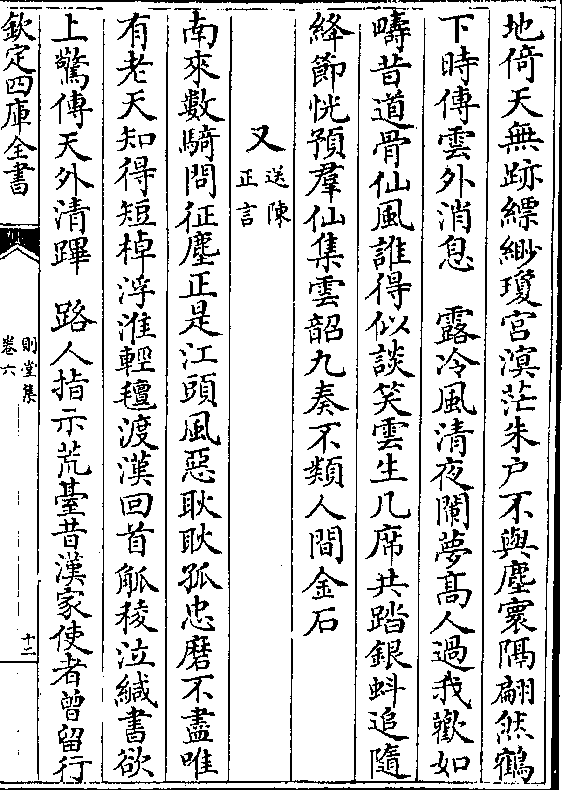 地倚天無跡縹緲瓊宮溟茫朱户不與塵寰隔翩然鶴
下時傳雲外消息　露冷風清夜闌夢髙人過我歡如
疇昔道骨仙風誰得似談笑雲生几席共踏銀蚪追隨
絳節恍預羣仙集雲韶九奏不類人間金石
又送陳正言
南來數騎問征塵正是江頭風惡耿耿孤忠磨不盡唯
有老天知得短棹浮淮輕氊渡漢回首觚稜泣緘書欲
上驚傳天外清蹕　路人指示荒臺昔漢家使者曾留行
欽定四庫全書
則堂集
卷六
十二